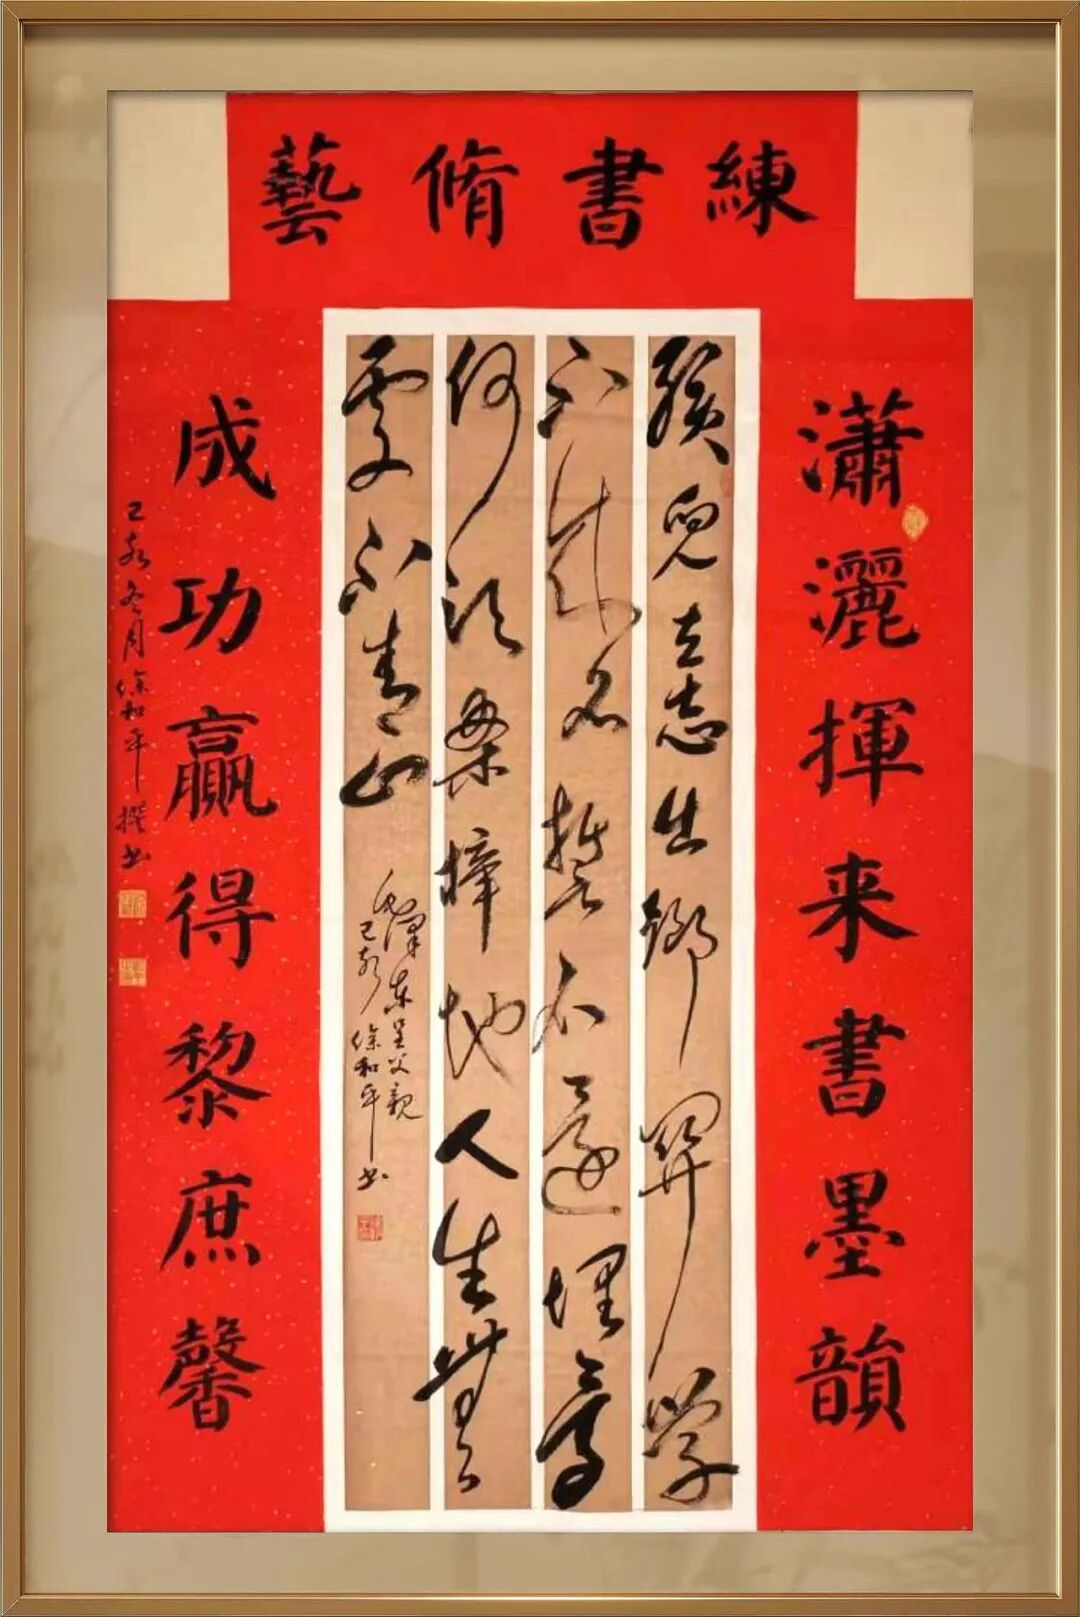 練書脩藝
瀟灑揮来書墨韻
孩兒立志出鄉關學
不成名誓不還埋骨
何須桑梓地人生無
處不青山
毛澤東呈父親
己亥徐和平书
成功贏得黎庶馨
己亥冬月徐和平撰书